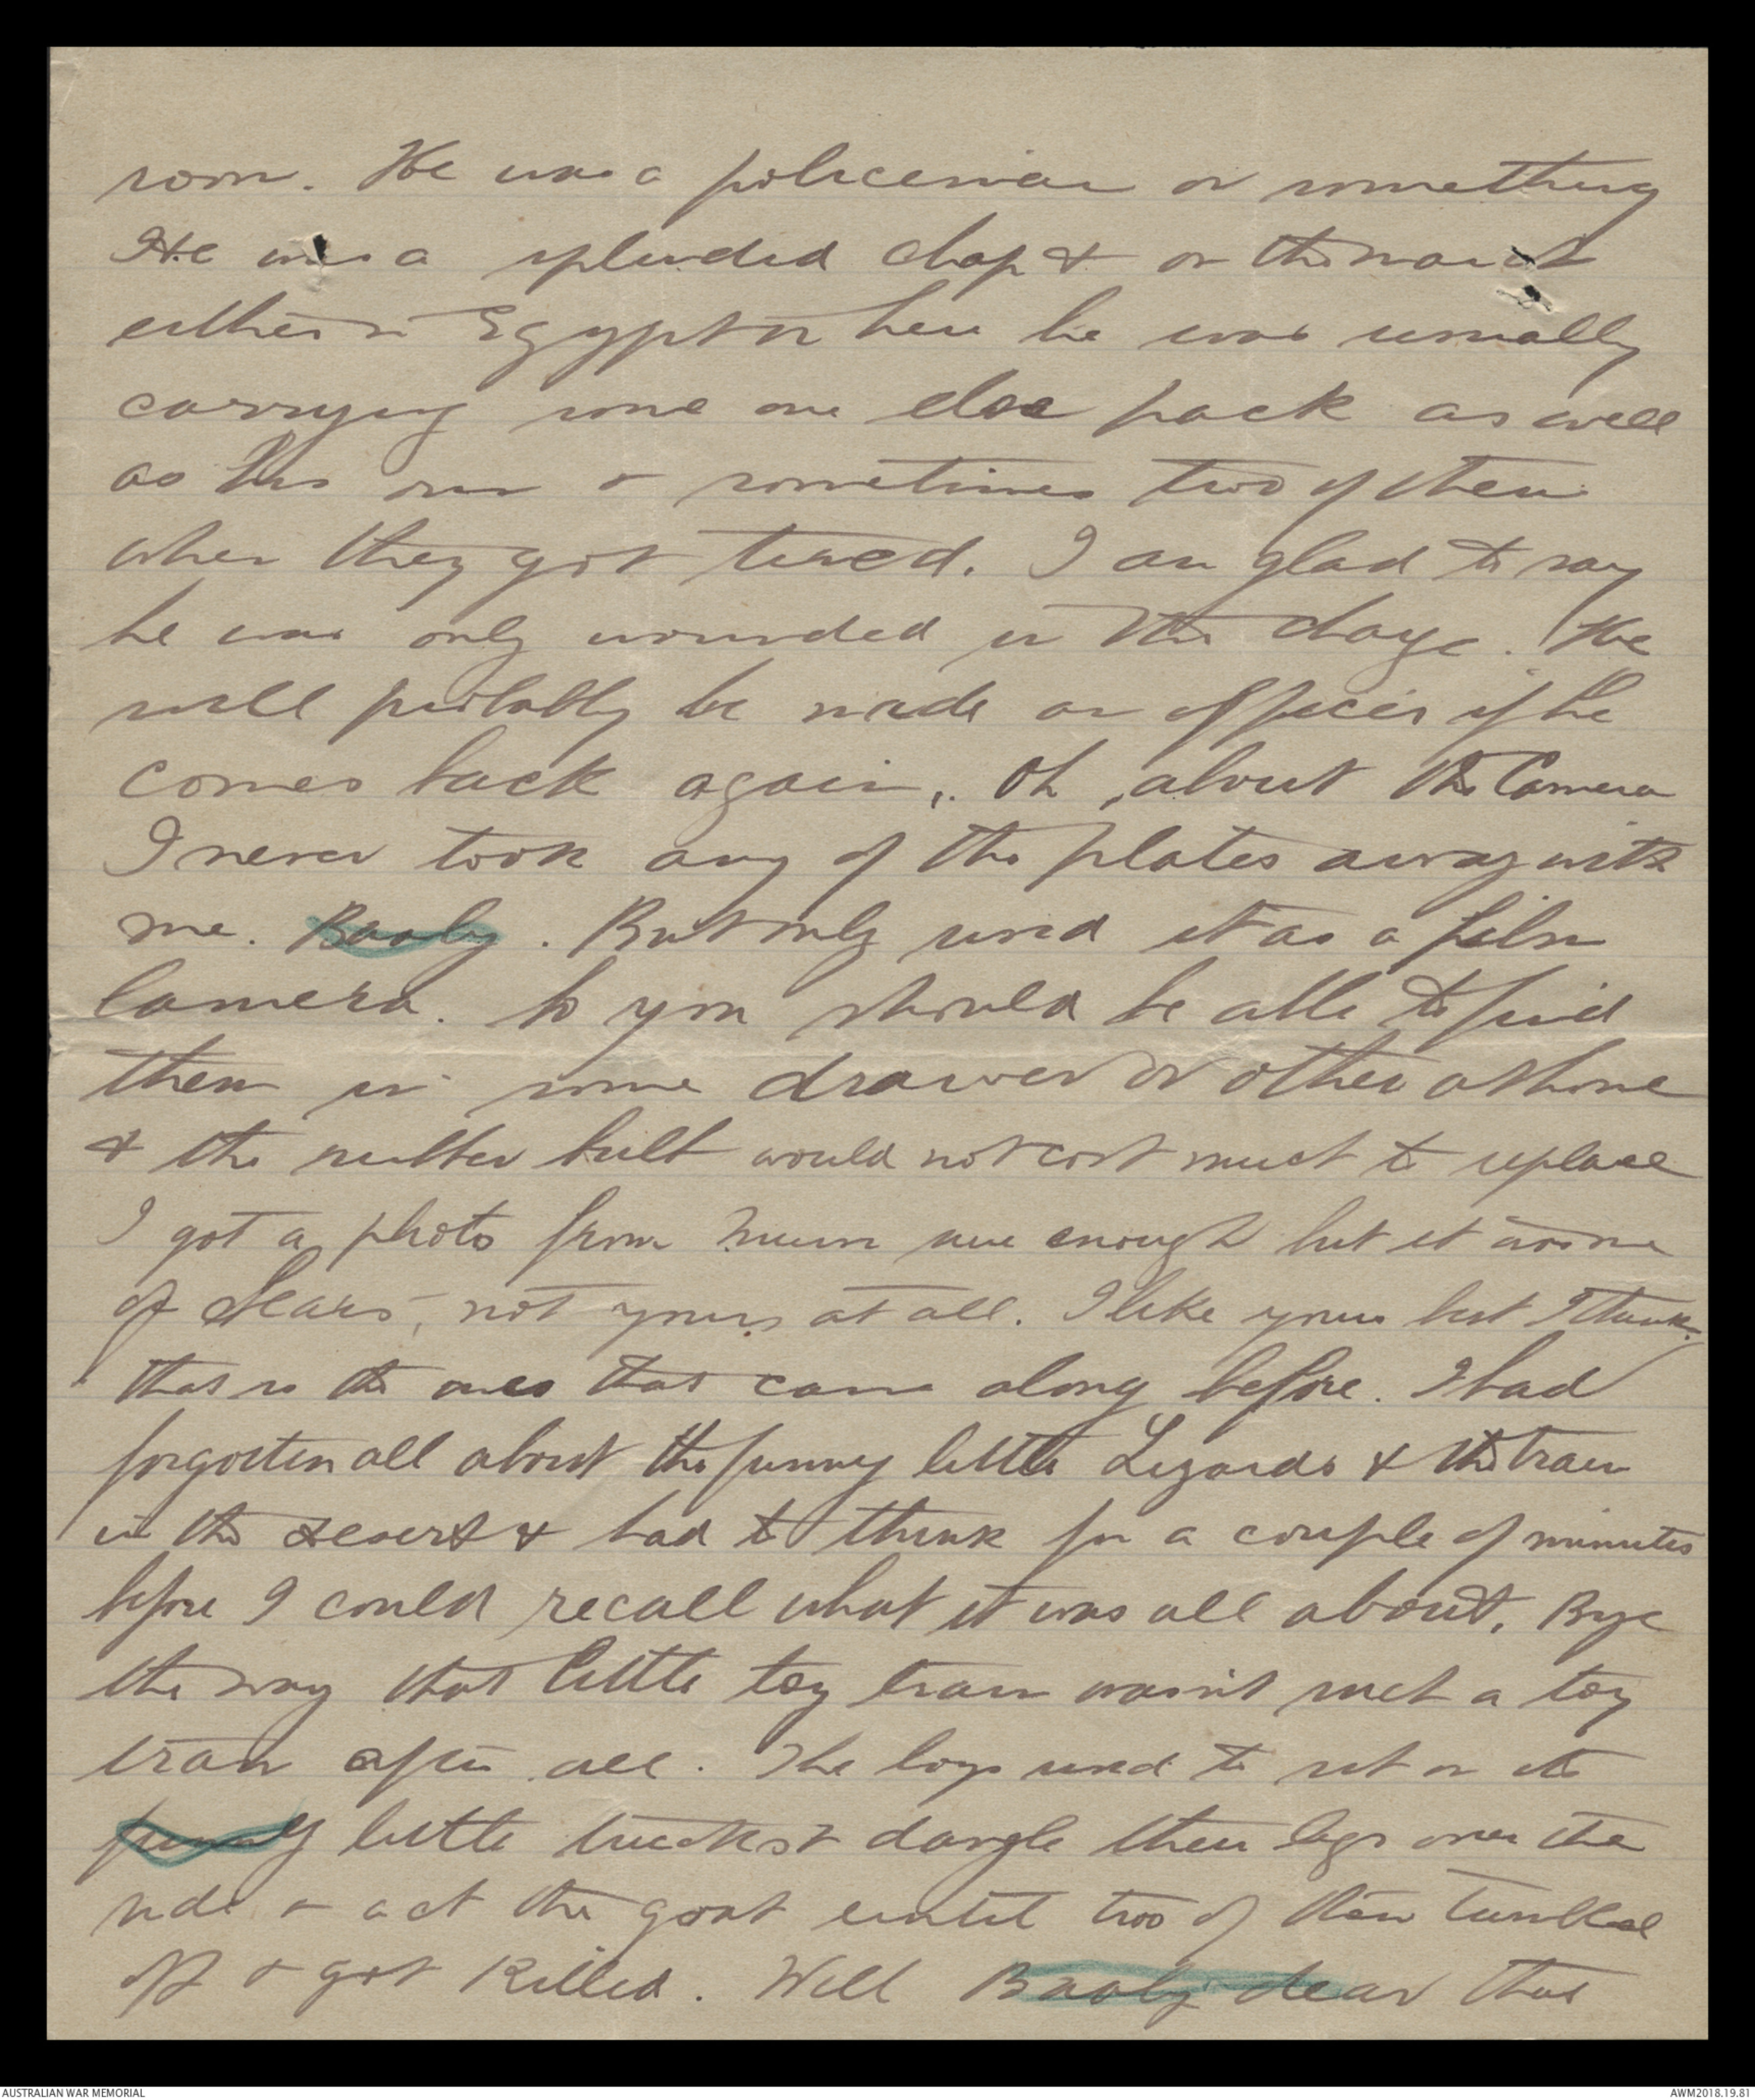 room. He was a policeman or something
He was a splendid chap & on the march
either in Egypt or here he was usually
carrying some one else pack as well
as his own & sometimes two of them
when they got tired. I am glad to say
he was only wounded in the charge. He
will probably be made an officer if he
comes back again,. Oh, about the Camera
I never took any of the plates away with
me. Booby. But only used it as a film
Camera. So you should be able to find
them in some drawer or other at home
& the rubber bulb would not cost much to replace
I got a photo from Mum sure enough but it was one
of , not yours at all. I like yours best I think.
that is the ones that came along before. I had
forgotten all about the funny little Lizards & the train
in the desert & had to think for a couple of minutes
before I could recall what it was all about. Bye
the way that little toy train wasn't such a toy
train after all. The boys used to sit on its
funny little trucks & dangle their legs over the
side & act the goat until two of them tumbled
off & got killed. Well Booby dear that
AUSTRALIAN WAR MEMORIAL
AWM2018.19.81